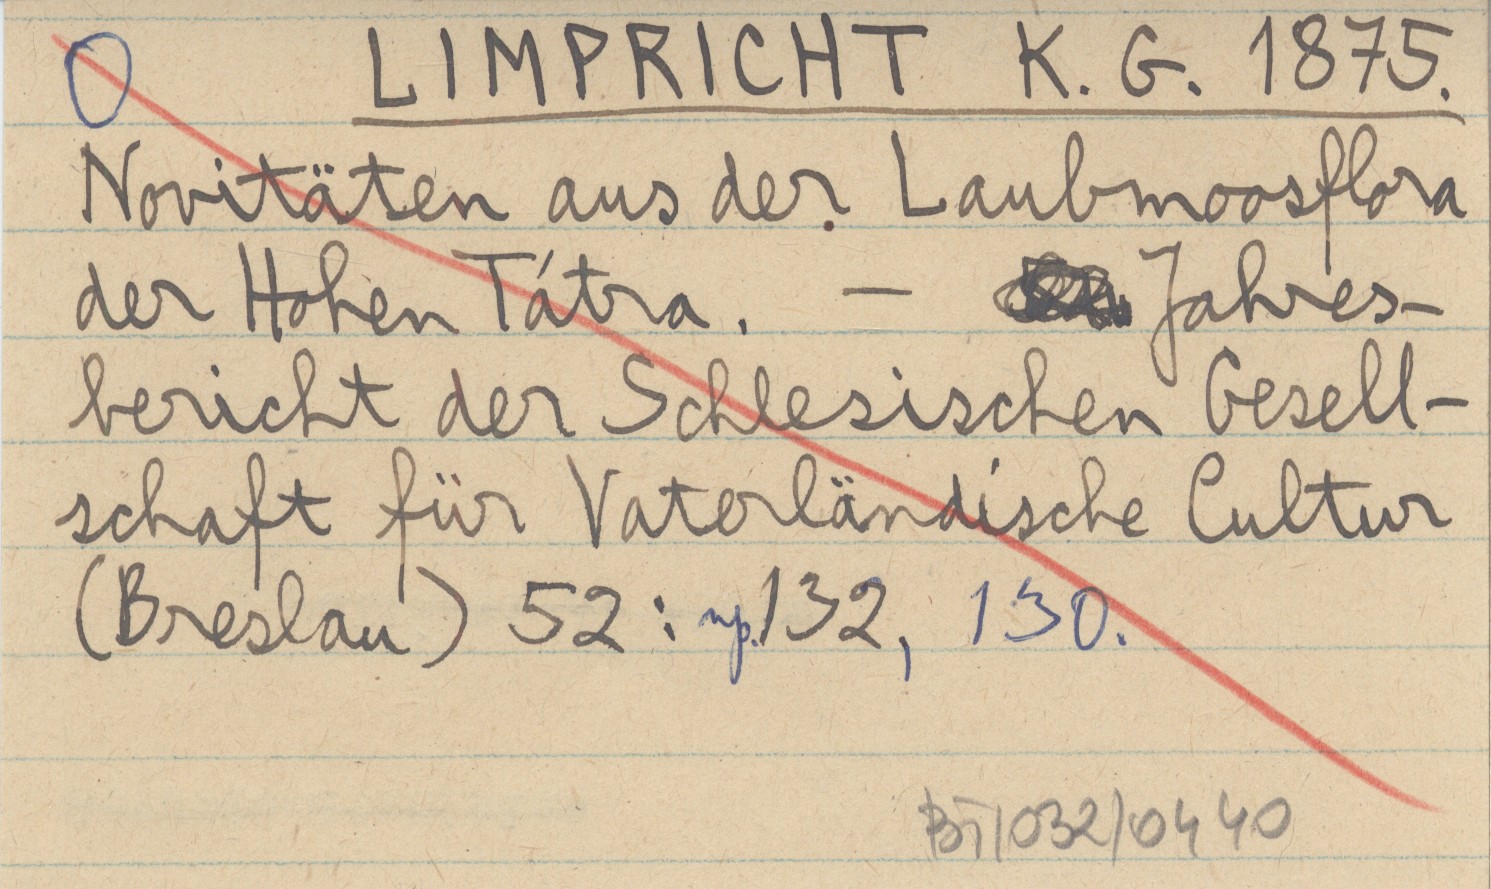 O LIMPRICHT K. G. 1875.
Novitäten aus der Laubmoosflora
der Hohen Tátra. — Jahres-
bericht der Schlesischen Gesell-
schaft für Vaterländische Cultur
(Breslau) 52: np. 132, 130.
BT/032/0440